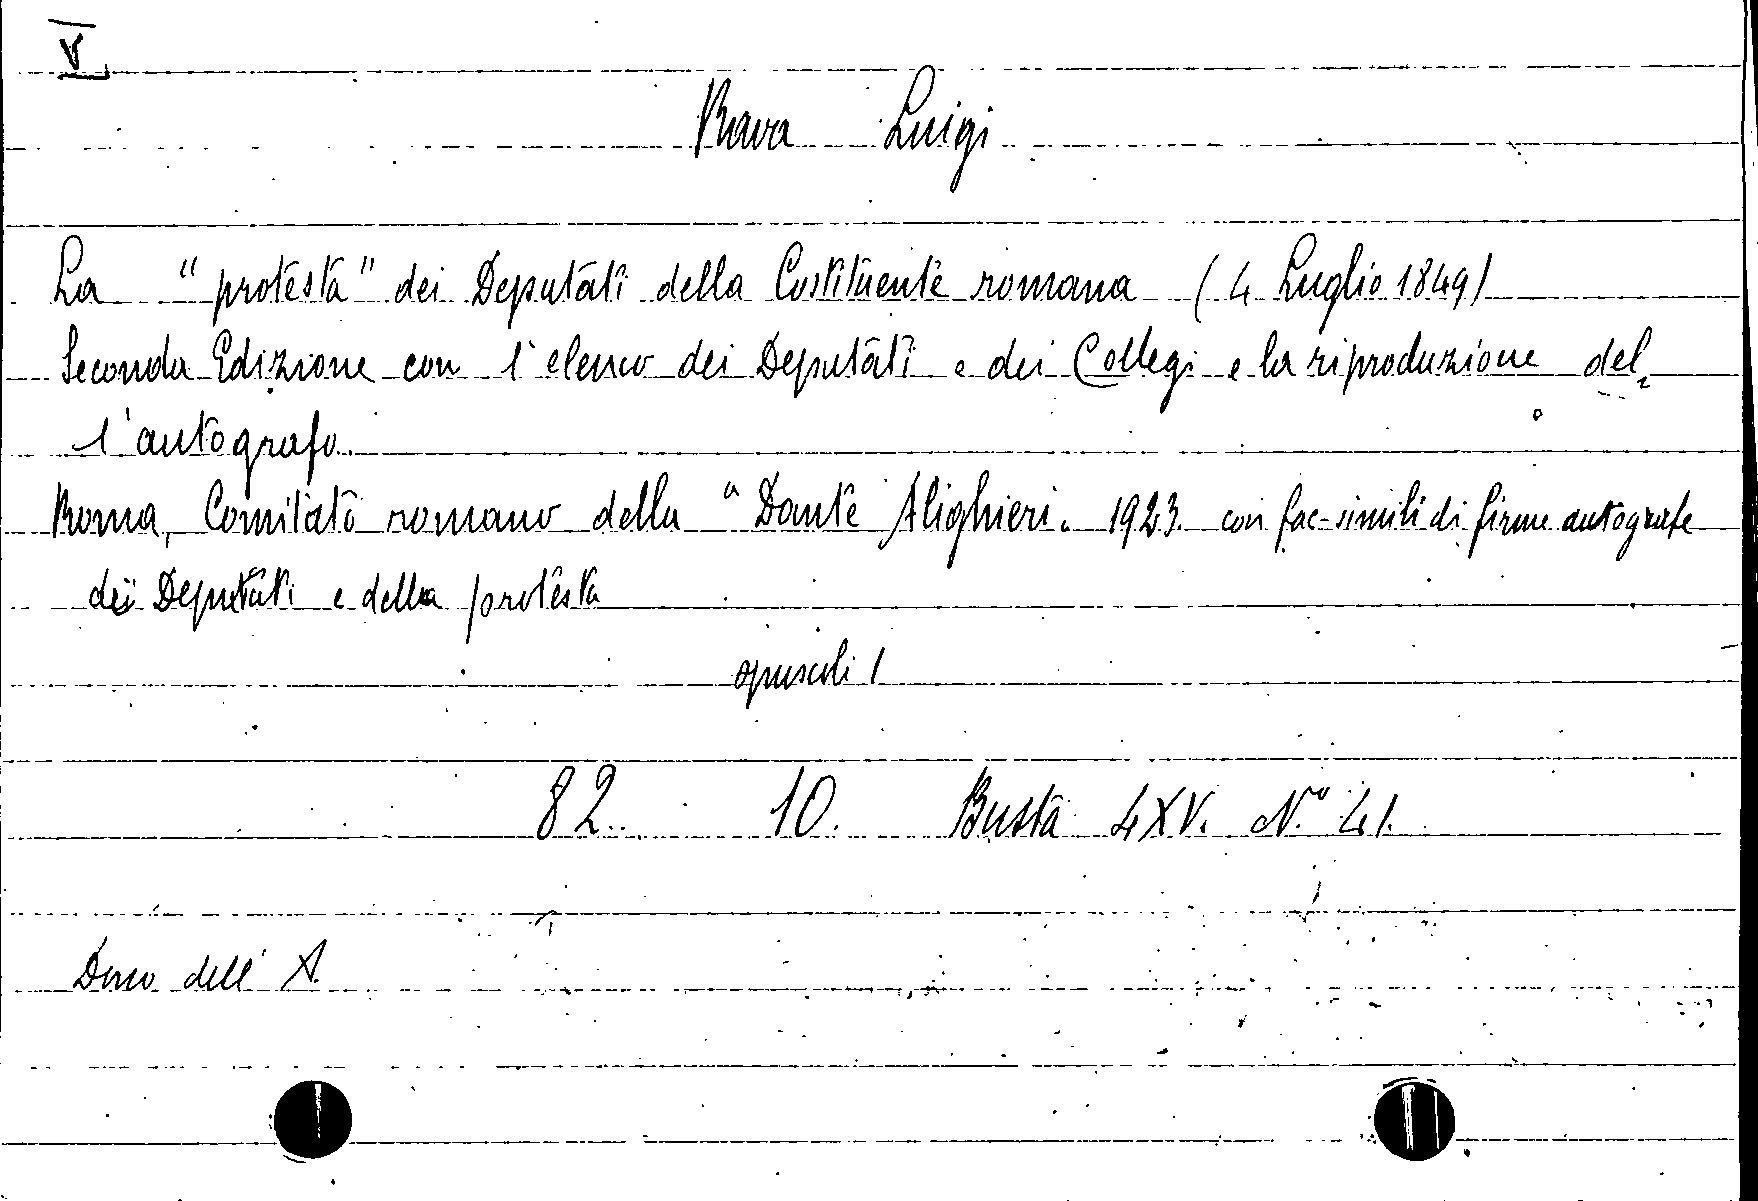 V
Rava Luigi
La "protesta" dei Deputati della Costituente romana (4 Luglio 1849)
Seconda Edizione con l'elenco dei Deputati e dei Collegi e la riproduzione del
l'autografo.
Roma, Comitato romano della "Dante Alighieri. 1923. con fac-simili di firme autografe
dei Deputati e della protesta
opuscoli 1
82. 10. Busta LXV. N.° 41.
Dono dell' A.